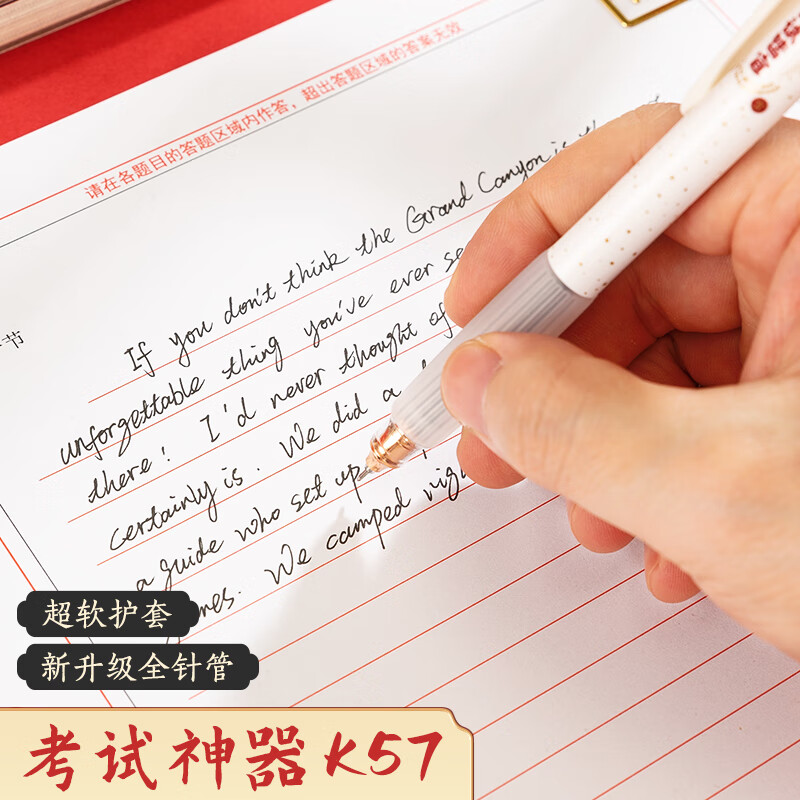 请在各题目的答题区域内作答，超出答题区域的答案无效
If you don't think the Grand Canyon is
unforgettable thing you've ever
there! I'd never thought of
certainly is. We did a
a guide who set up
We camped
节
超软护套
新升级全针管
考试神器K57